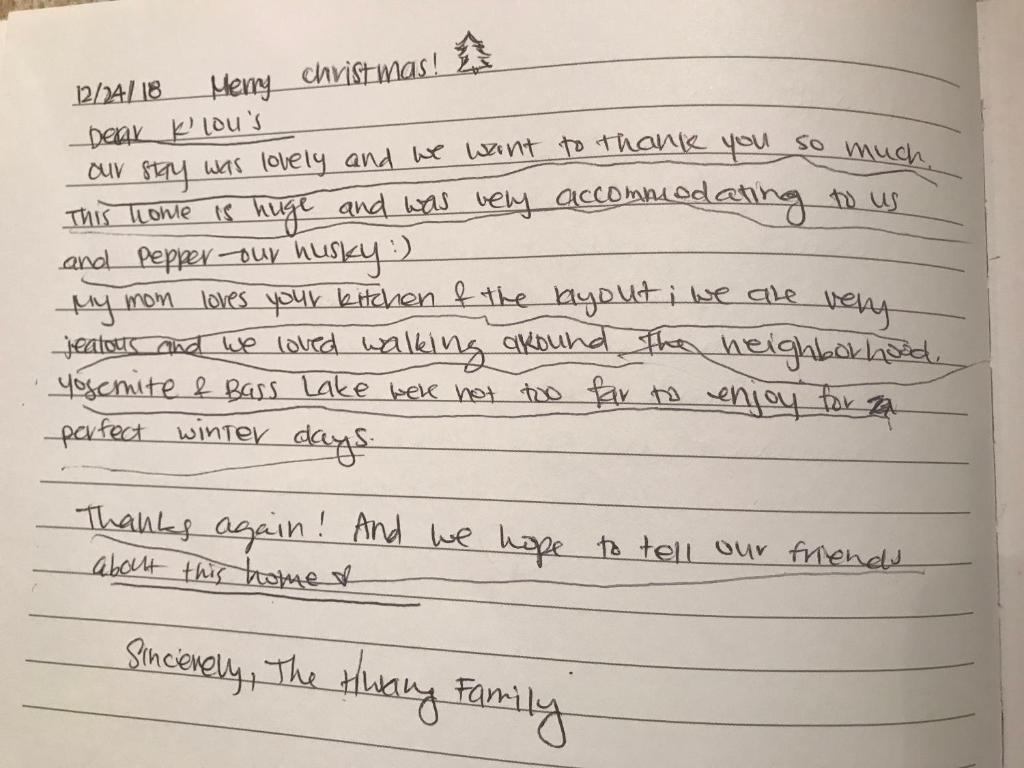 12/24/18 Merry christmas!
Dear K'lou's
our stay was lovely and we want to thank you so much.
This home is huge and was very accommodating to us
and Pepper - our husky :)
My mom loves your kitchen & the layout; we are very
jealous and we loved walking around the neighborhood.
Yosemite & Bass Lake were not too far to enjoy for
perfect winter days.
Thanks again! And we hope to tell our friends
about this home
Sincerely, The Hwang Family